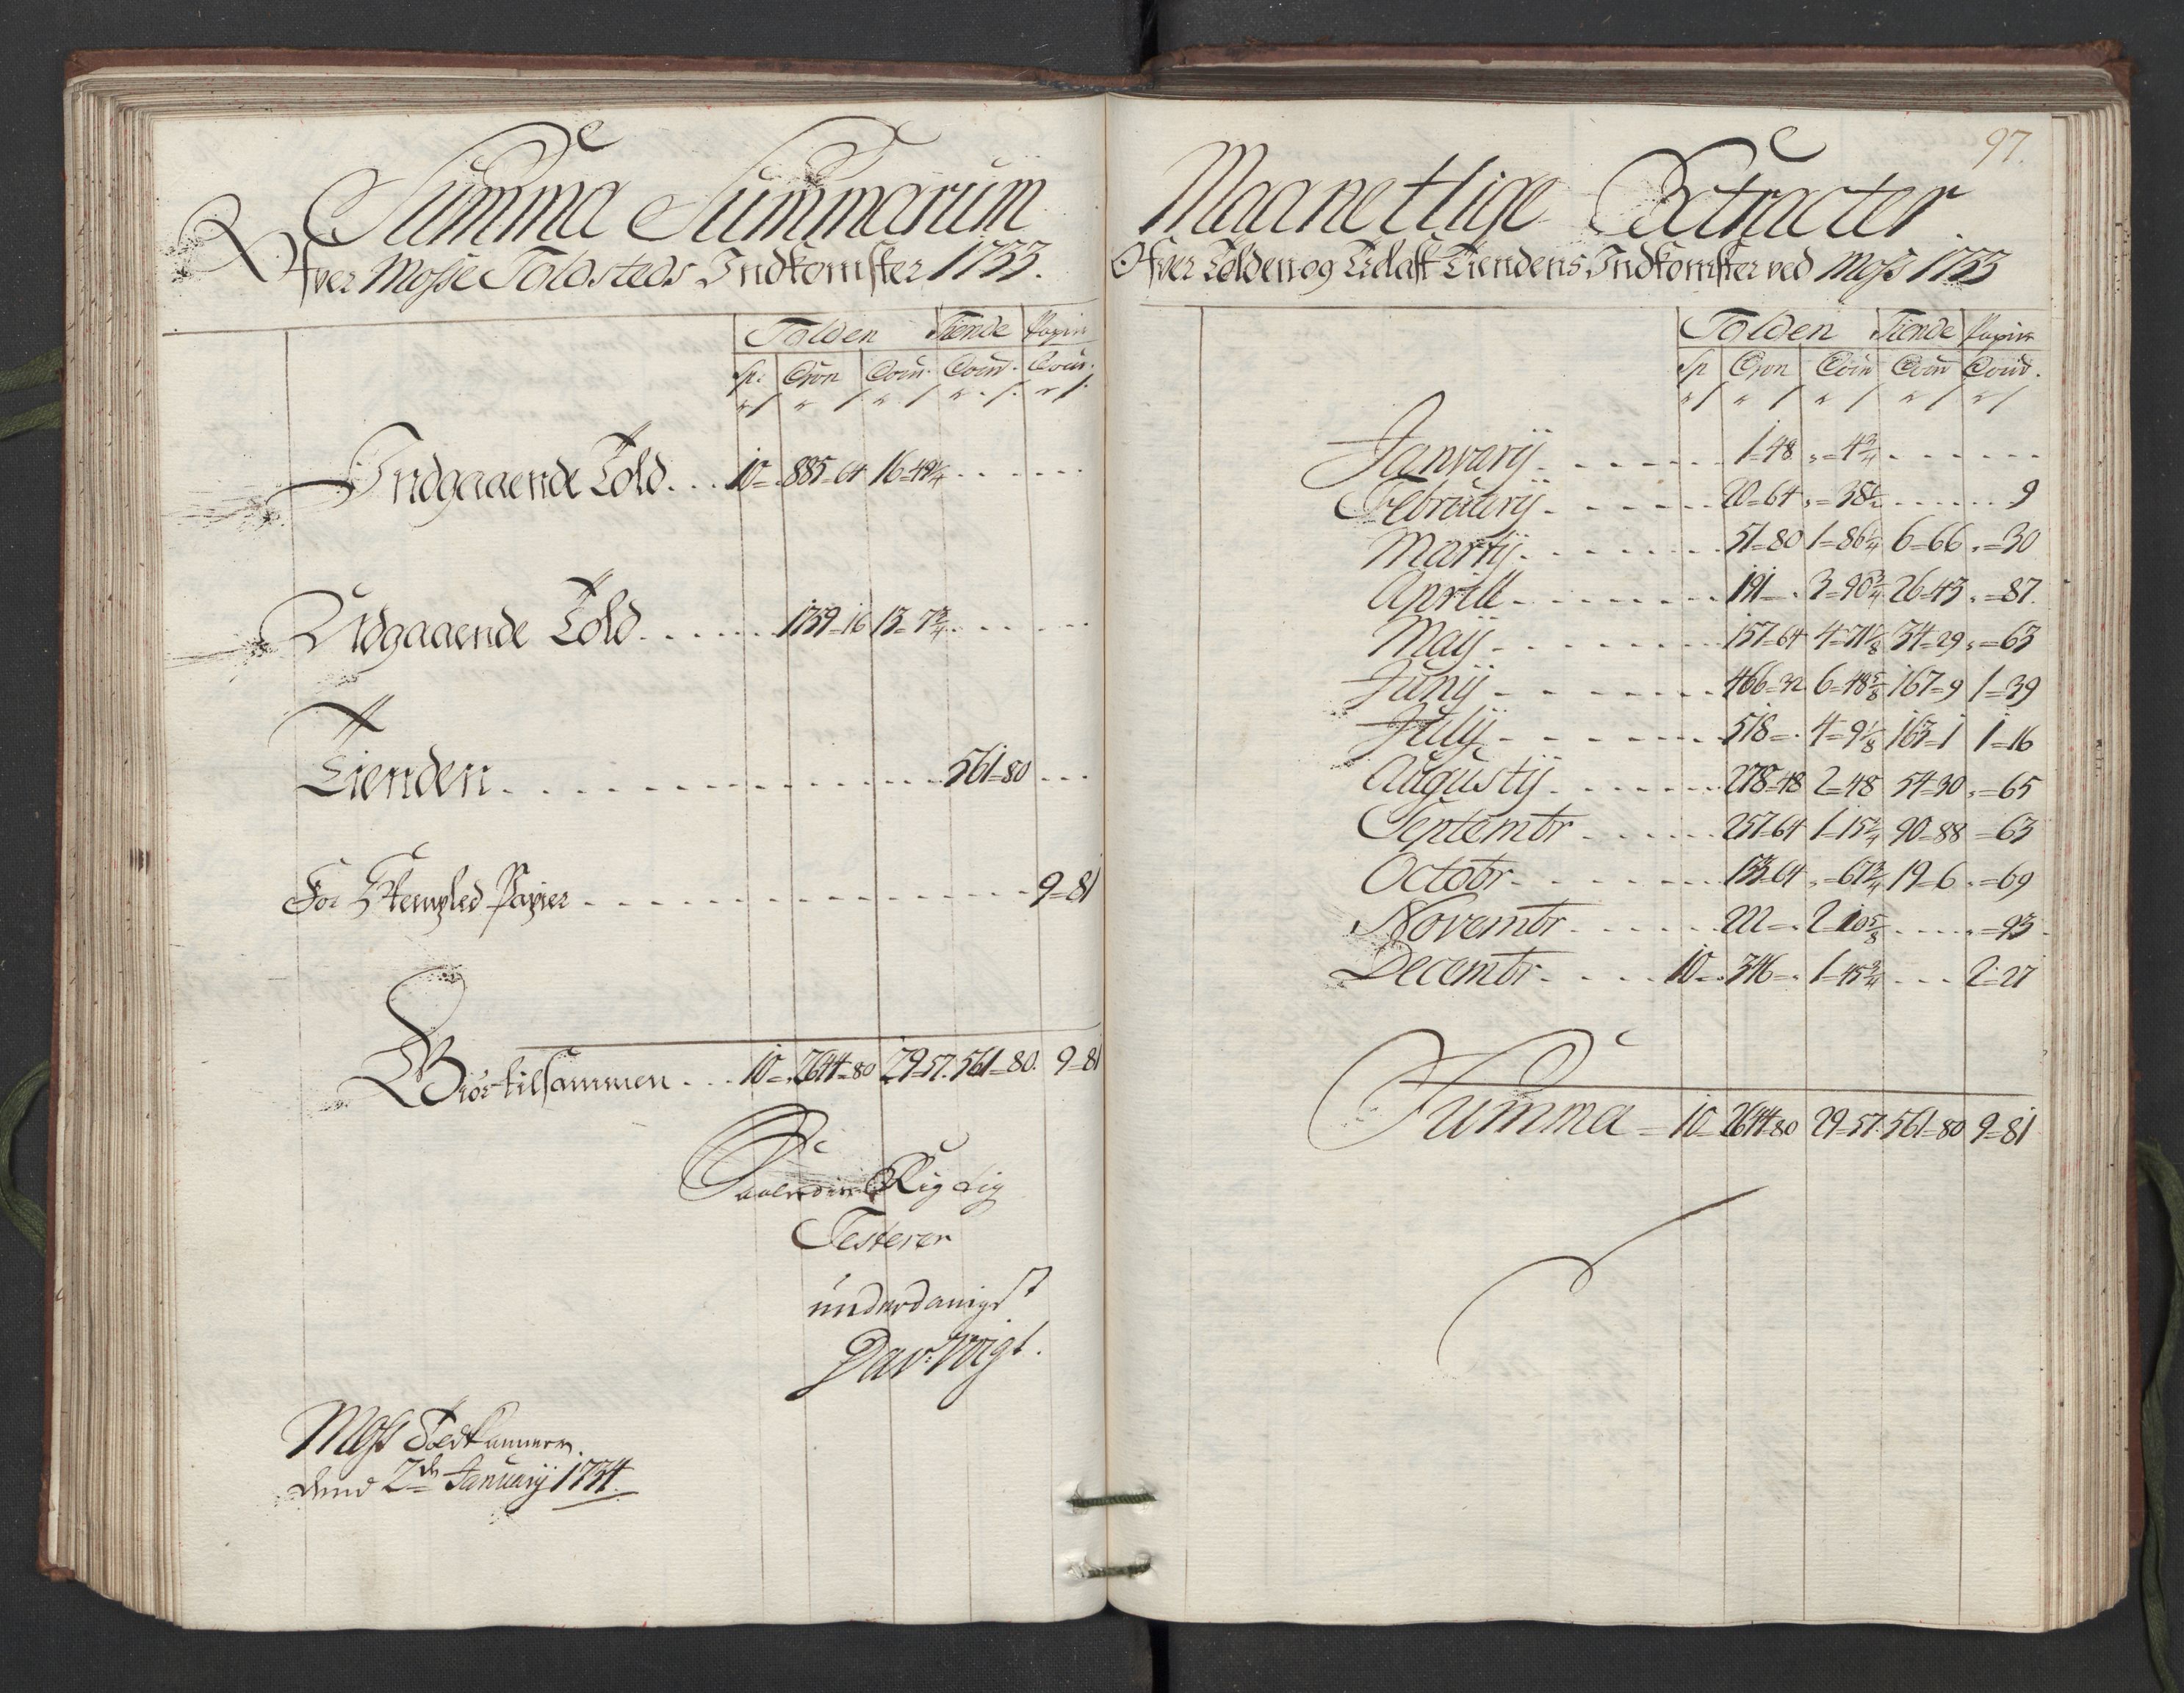 Summa Summarum
Ofver Mosse Toldsteds Indkomster 1733.
Tolden Tiende Papir
Sp: Cron Cour. Cour. Cour.
Indgaaende Told 10 = 885 = 64 16 = 49 1/4
Udgaaende Told 1759 = 16 13 = 7 3/4
Tienden 561 = 80
For Stempled Papier 9 = 81
Giör tilsammen 10 = 2644 = 80 29 = 57. 561 = 80. 9 = 81
Saaledis Rigtig
Testerer
underdanigst
Dav: Voigt.
Moss Toldkammer
dend 2den January 1734.
97.
Maanetlige Extracter
Ofver Tolden og Tilast Tiendens Indkomster ved Moss 1733
Tolden Tiende Papir
Sp Cron Cour Cour Cour.
Januarij 1 = 48 " = 4 3/4
Februarij 20 = 64 " = 38 1/2 9
Martij 51 = 80 1 = 86 1/4 6 = 66 " = 30
Aprill 191 = " 3 = 90 3/4 26 = 43 " = 87.
Maij 157 = 64 4 = 71 1/8 34 = 29 " = 63
Junij 466 = 32 6 = 48 5/8 167 = 9 1 = 39
Julij 518 = " 4 = 9 1/8 163 = 1 1 = 16
Augustij 278 = 48 2 = 48 54 = 30 " = 65
Septembr 257 = 64 1 = 15 3/4 90 = 88 = 63
Octobr 133 = 64 " = 67 3/4 19 = 6 " = 69
Novembr 222 = " 2 = 10 5/8 " = 93
Decembr 10 = " 346 = " 1 = 45 3/4 2 = 27
Summa = 10 = 2644 = 80 29 = 57. 561 = 80 9 = 81